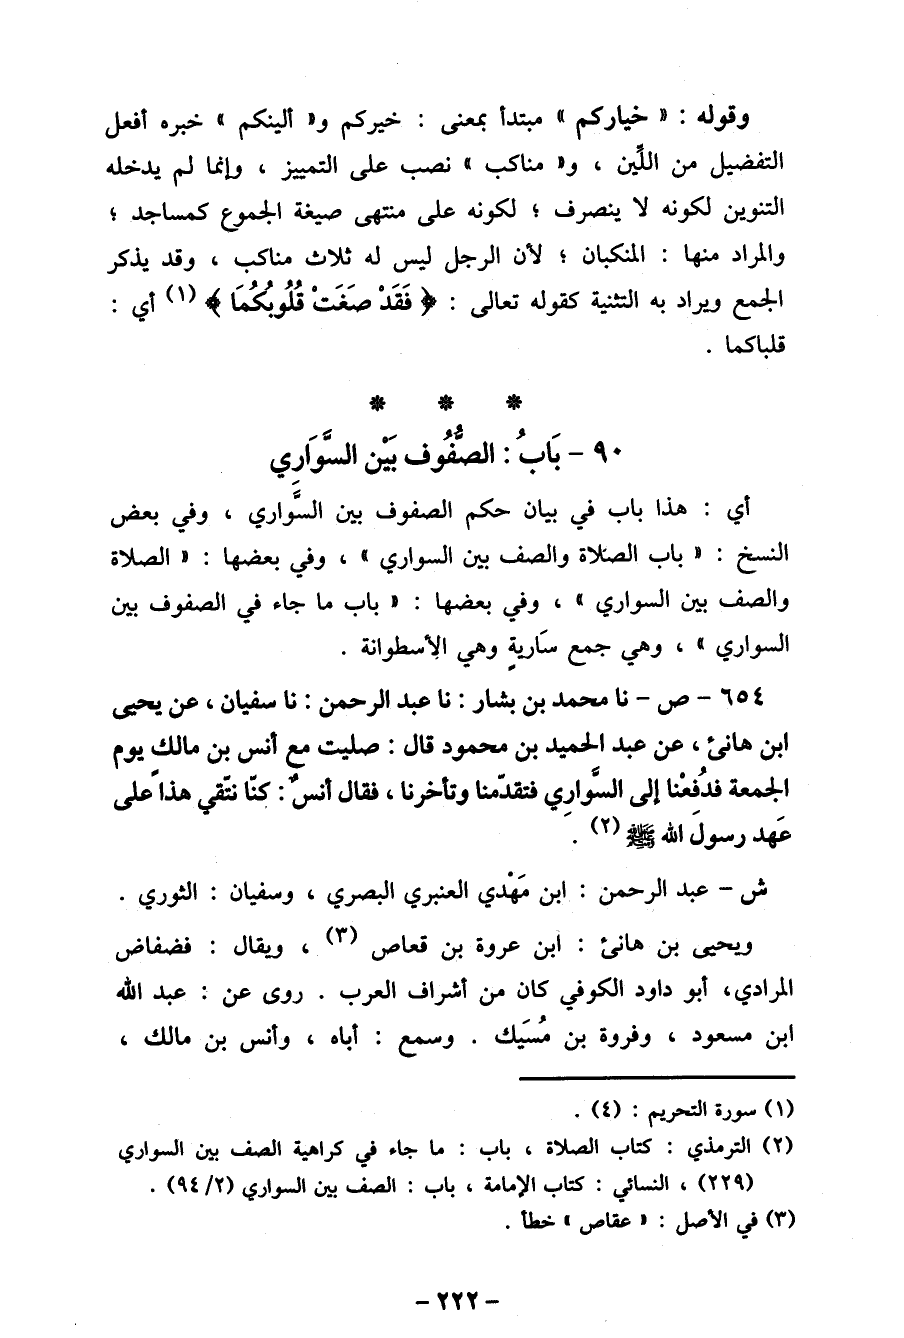 وقوله : « خياركم » مبتدأ بمعنى : خيركم و« ألينكم » خبره أفعل
التفضيل من اللِّين ، و« مناكب » نصب على التمييز ، وإنما لم يدخله
التنوين لكونه لا ينصرف ؛ لكونه على منتهى صيغة الجموع كمساجد ؛
والمراد منها : المنكبان ؛ لأن الرجل ليس له ثلاث مناكب ، وقد يذكر
الجمع ويراد به التثنية كقوله تعالى : ﴿ فَقَدْ صَغَتْ قُلُوبُكُمَا ﴾ (١) أي :
قلباكما .
* * *
٩٠ - بَابُ : الصُّفُوفِ بَيْن السَّوَارِي
أي : هذا باب في بيان حكم الصفوف بين السَّواري ، وفي بعض
النسخ : « باب الصلاة والصف بين السواري » ، وفي بعضها : « الصلاة
والصف بين السواري » ، وفي بعضها : « باب ما جاء في الصفوف بين
السواري » ، وهي جمع سَاريةٍ وهي الأسطوانة .
٦٥٤ - ص - نا محمد بن بشار : نا عبد الرحمن : نا سفيان ، عن يحيى
ابن هانئ ، عن عبد الحميد بن محمود قال : صليت مع أنس بن مالك يوم
الجمعة فدُفِعْنا إلى السَّواري فتقدّمنا وتأخرنا ، فقال أنسٌ : كنّا نتّقي هذا على
عَهد رسول الله ﷺ (٢) .
ش - عبد الرحمن : ابن مَهْدي العنبري البصري ، وسفيان : الثوري .
ويحيى بن هانئ : ابن عروة بن قعاص (٣) ، ويقال : فضفاض
المرادي، أبو داود الكوفي كان من أشراف العرب . روى عن : عبد الله
ابن مسعود ، وفروة بن مُسَيك . وسمع : أباه ، وأنس بن مالك ،
(١) سورة التحريم : (٤) .
(٢) الترمذي : كتاب الصلاة ، باب : ما جاء في كراهية الصف بين السواري
(٢٢٩) ، النسائي : كتاب الإمامة ، باب : الصف بين السواري (٢/ ٩٤) .
(٣) في الأصل : « عقاص » خطأ .
- ٢٢٢ -